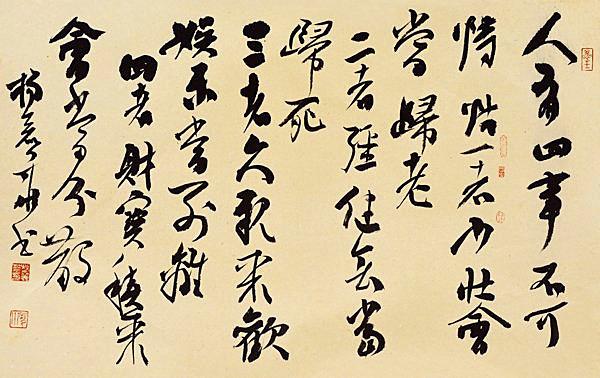 人有四事不可
恃怙一者少壯會
當歸老
二者强健會當
歸死
三者六親聚歡
娛樂當別離
四者財寶積聚
會當分散